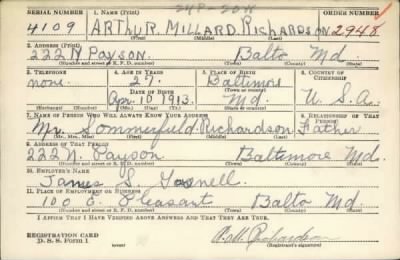 SERIAL NUMBER 1. NAME (Print) ORDER NUMBER
4109 ARTHUR MILLARD RICHARDSON 2948
(First) (Middle) (Last)
2. ADDRESS (Print)
222 N Payson. Balto Md
(Number and street or R. F. D. number) (Town) (County) (State)
3. TELEPHONE 4. AGE IN YEARS 5. PLACE OF BIRTH 6. COUNTRY OF CITIZENSHIP
none 27. Baltimore
DATE OF BIRTH (Town or county)
Apr. 10 1913. Md. U. S. A.
(Exchange) (Number) (Mo.) (Day) (Yr.) (State or country)
7. NAME OF PERSON WHO WILL ALWAYS KNOW YOUR ADDRESS 8. RELATIONSHIP OF THAT PERSON
Mr. Sommerfield Richardson Father
(Mr., Mrs., Miss) (First) (Middle) (Last)
9. ADDRESS OF THAT PERSON
222 N. Payson Baltimore Md.
(Number and street or R. F. D. number) (Town) (County) (State)
10. EMPLOYER'S NAME
James S.
11. PLACE OF EMPLOYMENT OR BUSINESS
100 E. Pleasant Balto Md.
(Number and street or R. F. D. number) (Town) (County) (State)
I AFFIRM THAT I HAVE VERIFIED ABOVE ANSWERS AND THAT THEY ARE TRUE.
REGISTRATION CARD
D. S. S. Form 1 Richardson
(Registrant's signature)